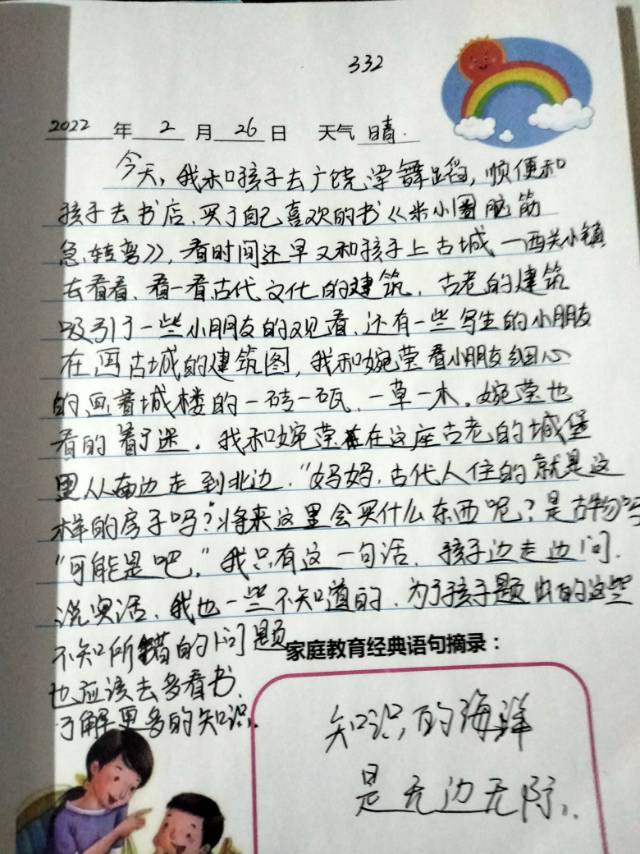 332
2022 年 2 月 26 日 天气 晴.
今天,我和孩子去广饶学舞蹈,顺便和
孩子去书店.买了自己喜欢的书《米小圈脑筋
急转弯》,看时间还早又和孩子上古城一西关小镇
去看看.看一看古代文化的建筑.古老的建筑
吸引了一些小朋友的观看.还有一些写生的小朋友
在画古城的建筑图,我和婉莹看小朋友细心
的画着城楼的一砖一瓦.一草一木.婉莹也
看的着了迷.我和婉莹在这座古老的城堡
里从南边走到北边."妈妈,古代人住的就是这
样的房子吗?将来这里会买什么东西呢?是古物吗
"可能是吧,"我只有这一句话.孩子边走边问.
说实话.我也一些不知道的.为了孩子题出的这些
不知所错的问题
家庭教育经典语句摘录:
也应该去多看书.
了解更多的知识.
知识的海洋
是无边无际.